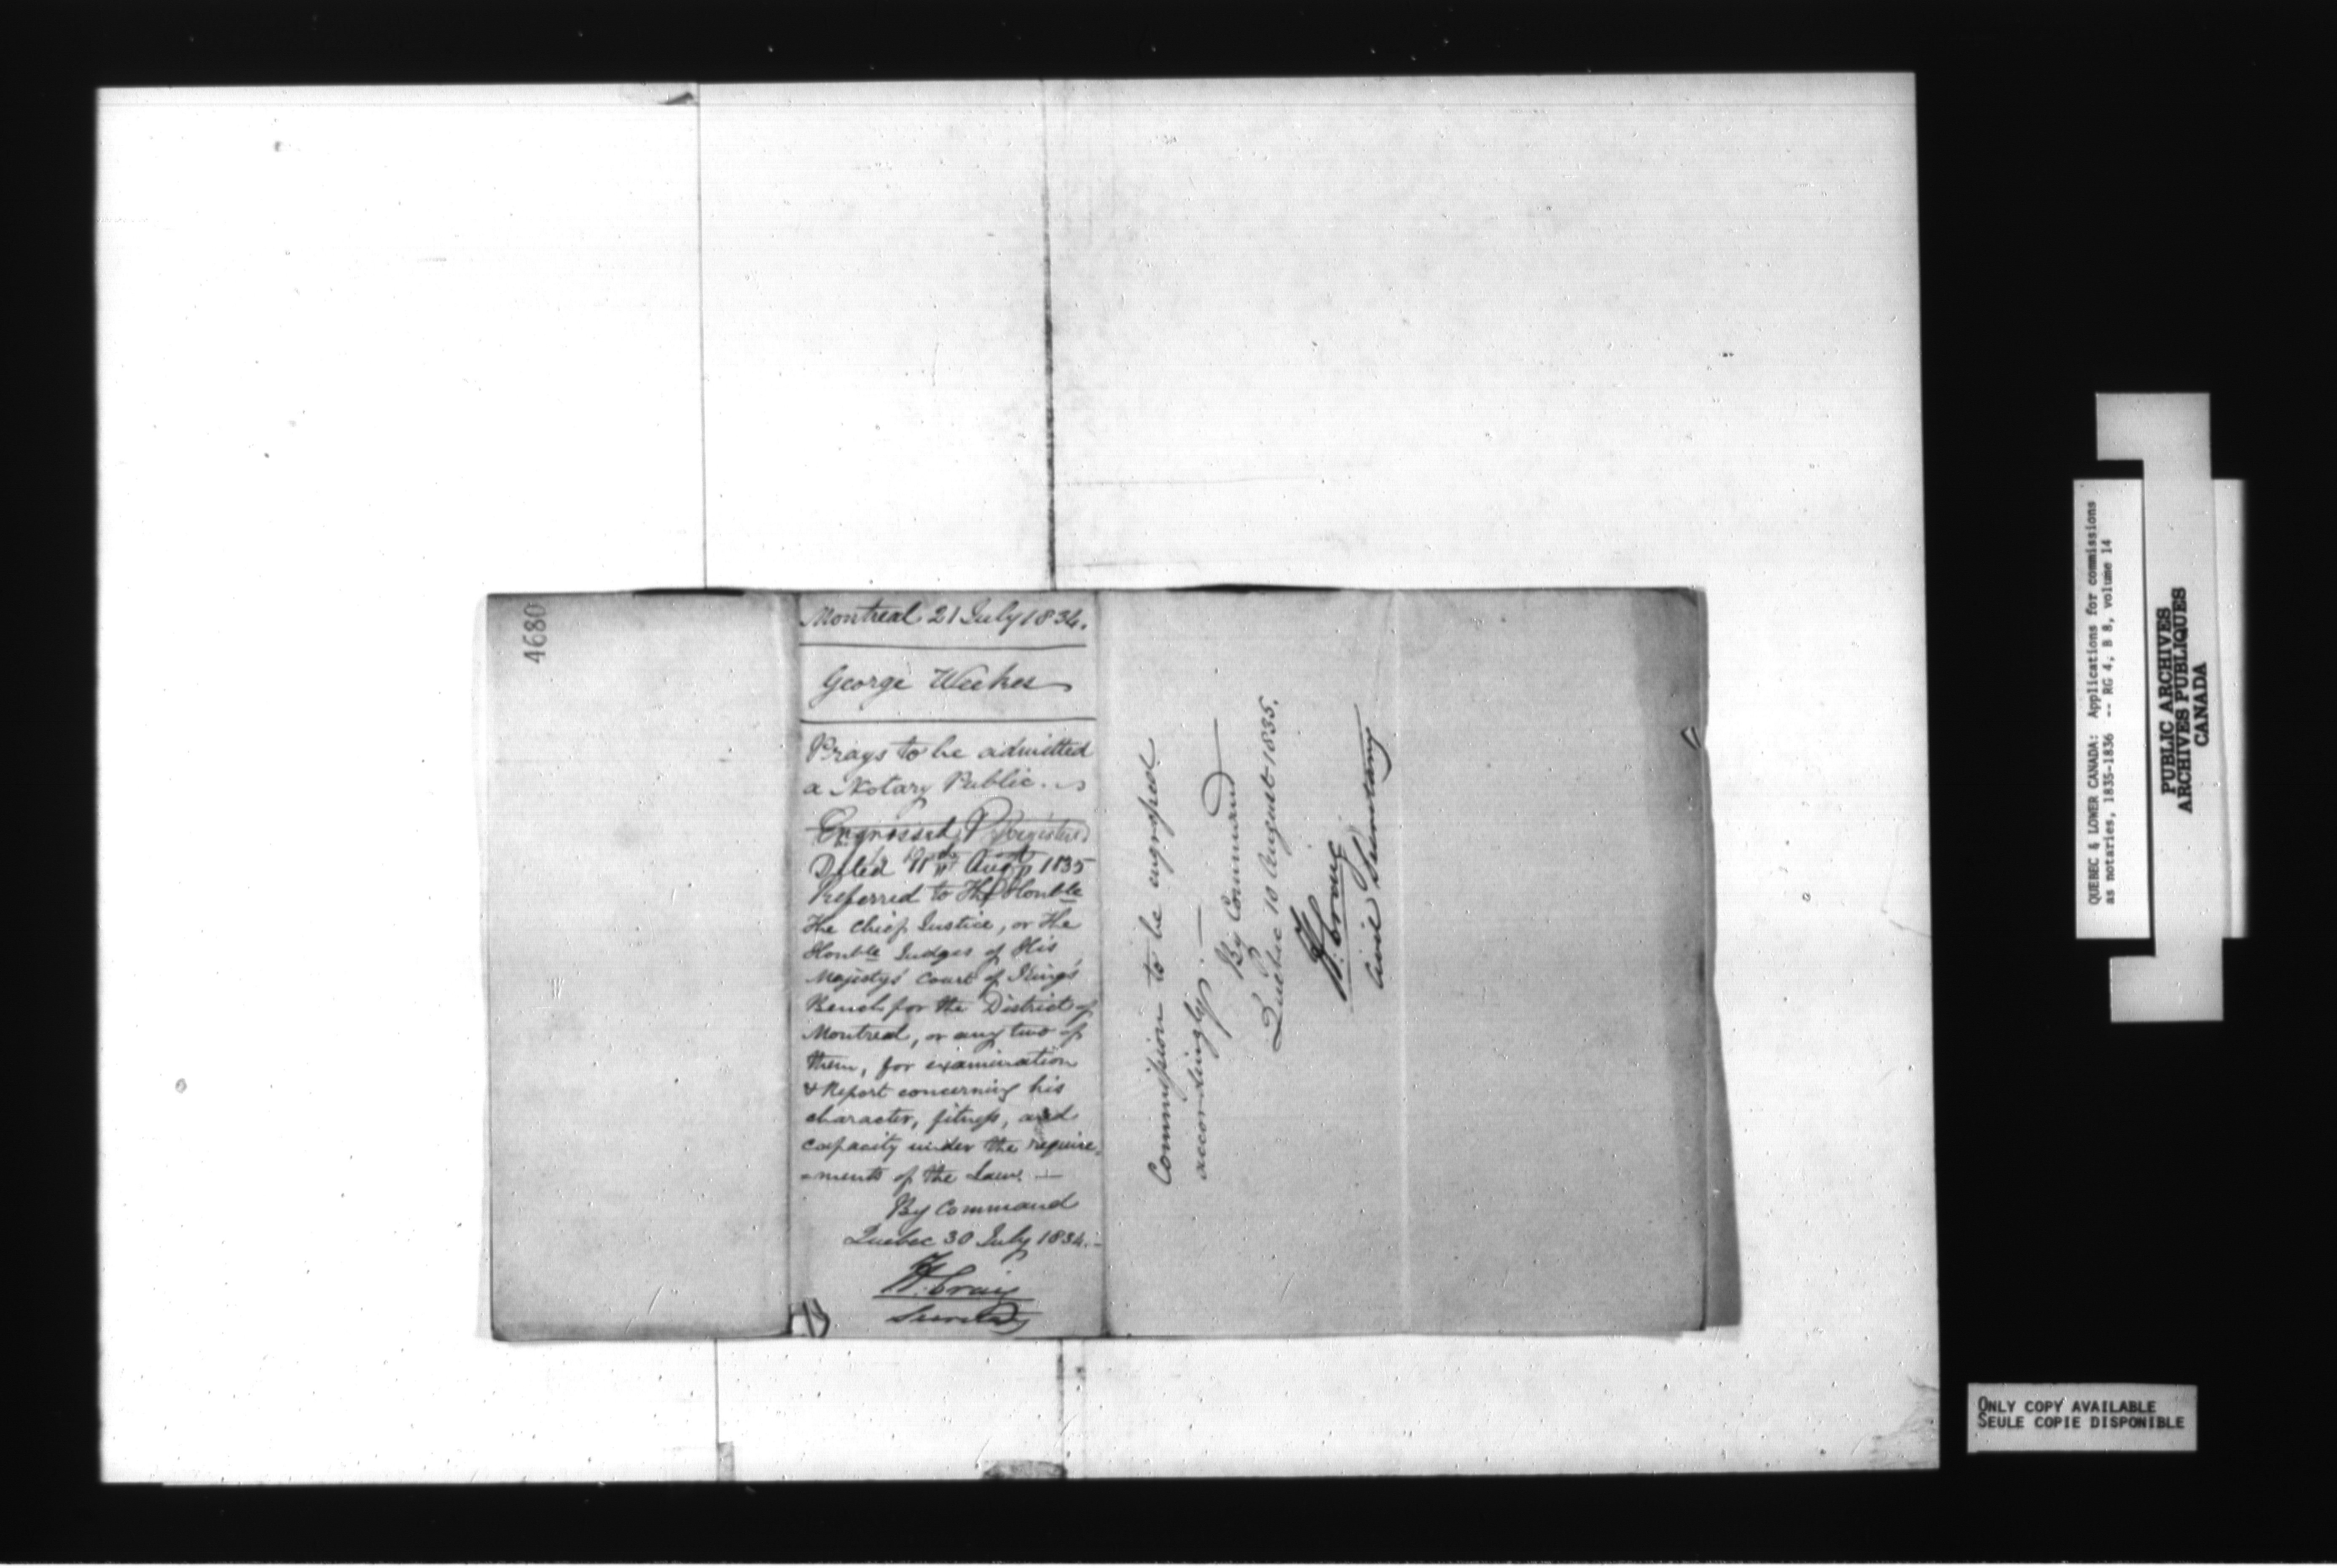 4680
Montreal 21 July 1834.
George Weekes
Prays to be admitted
a Notary Public.
Engrossed, Registered
Dated Augt 1835
Referred to The Honble
the Chief Justice, or the
Honble Judges of His
Majesty's Court of King's
Bench for the District of
Montreal, or any two of
them, for examination
& Report concerning his
character, fitness, and
capacity under the require-
-ments of the Law. —
By Command
Quebec 30 July 1834. —
H. Craig
Secretary
Commission to be engrossed
accordingly. —
By Command
Quebec 10 August 1835.
H. Craig
Civil Secretary
QUEBEC & LOWER CANADA: Applications for commissions
as notaries, 1835-1836 -- RG 4, B 8, volume 14
PUBLIC ARCHIVES
ARCHIVES PUBLIQUES
CANADA
ONLY COPY AVAILABLE
SEULE COPIE DISPONIBLE